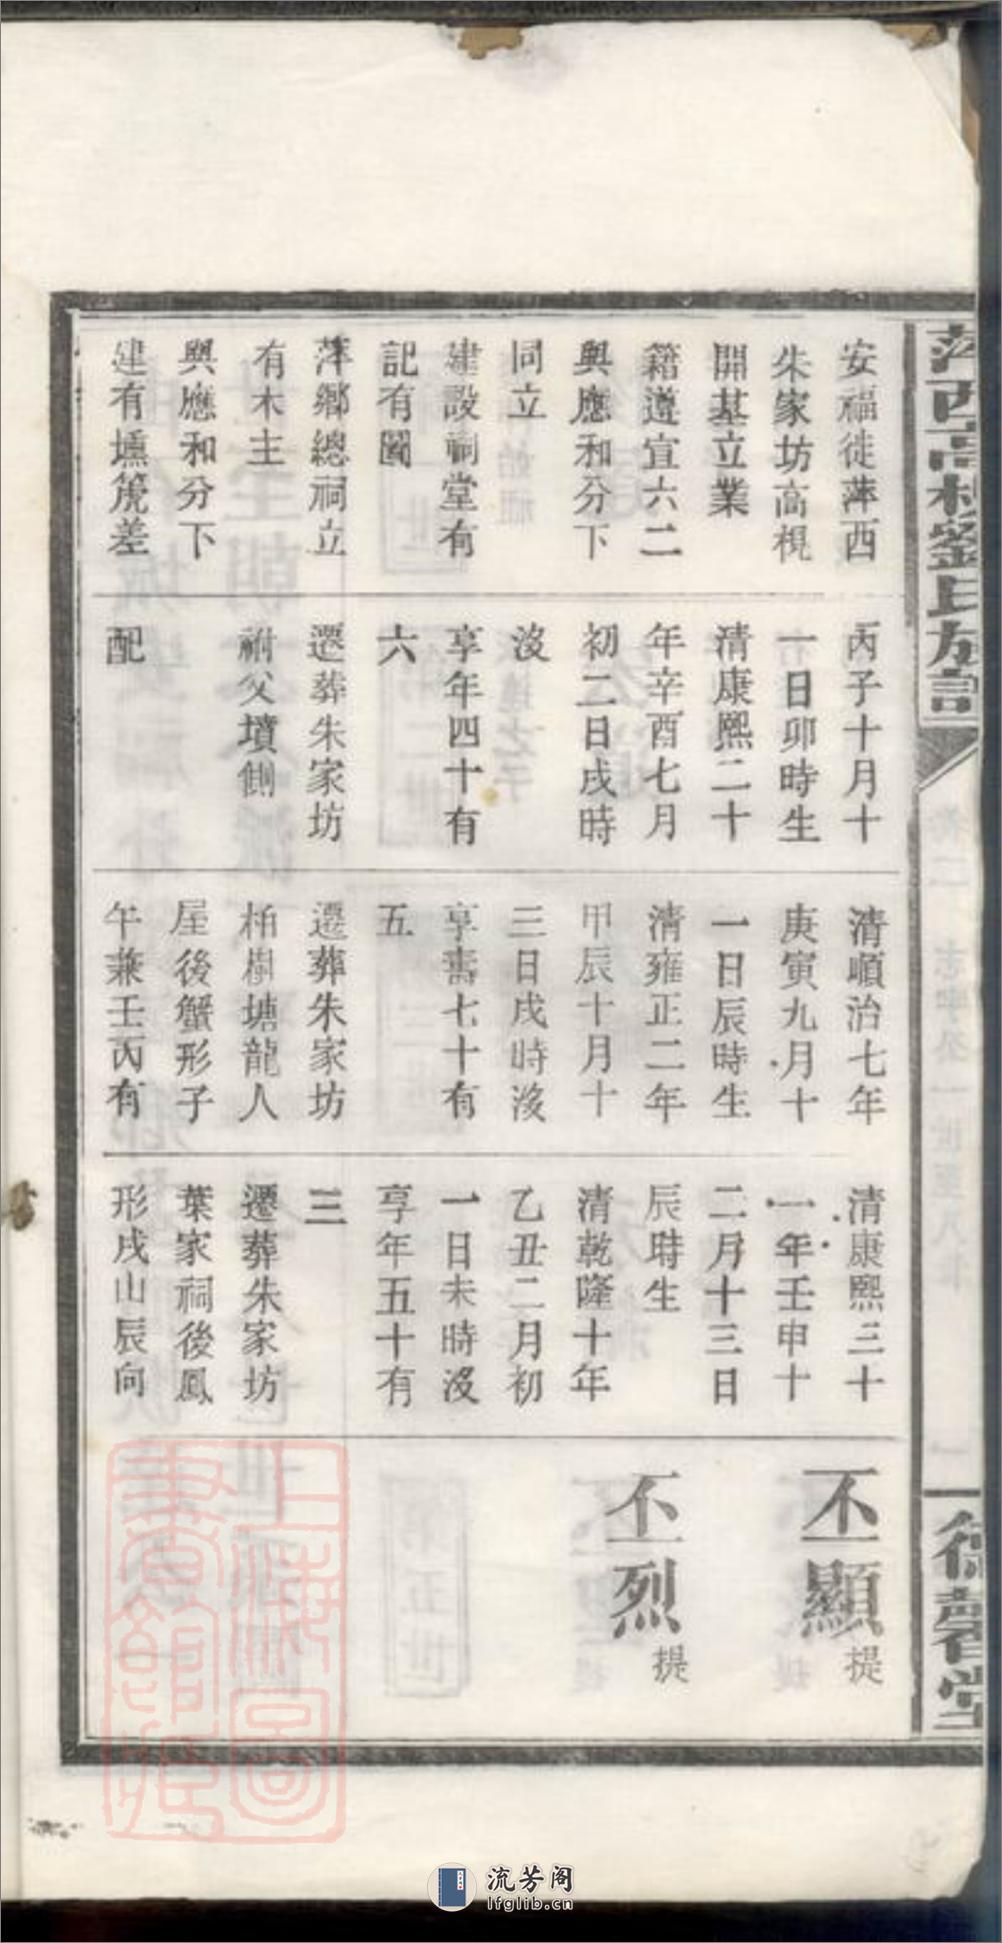 安福徙萍西
朱家坊高梘
開基立業
籍遵宜六二
與應和分下
同立
建設祠堂有
記有圖
萍鄉總祠立
有木主
與應和分下
建有壎箎差
丙子十月十
一日卯時生
清康熙二十
年辛酉七月
初二日戌時
沒
享年四十有
六
遷葬朱家坊
祔父墳側
配
清順治七年
庚寅九月十
一日辰時生
清雍正二年
甲辰十月十
三日戌時沒
享壽七十有
五
遷葬朱家坊
柏樹塘龍人
屋後蟹形子
午兼壬丙有
清康熙三十
一年壬申十
二月十三日
辰時生
清乾隆十年
乙丑二月初
一日未時沒
享年五十有
三
遷葬朱家坊
葉家祠後鳳
形戌山辰向
丕顯 提
丕烈 提
上海圖書館藏
流芳阁
lfglib.cn